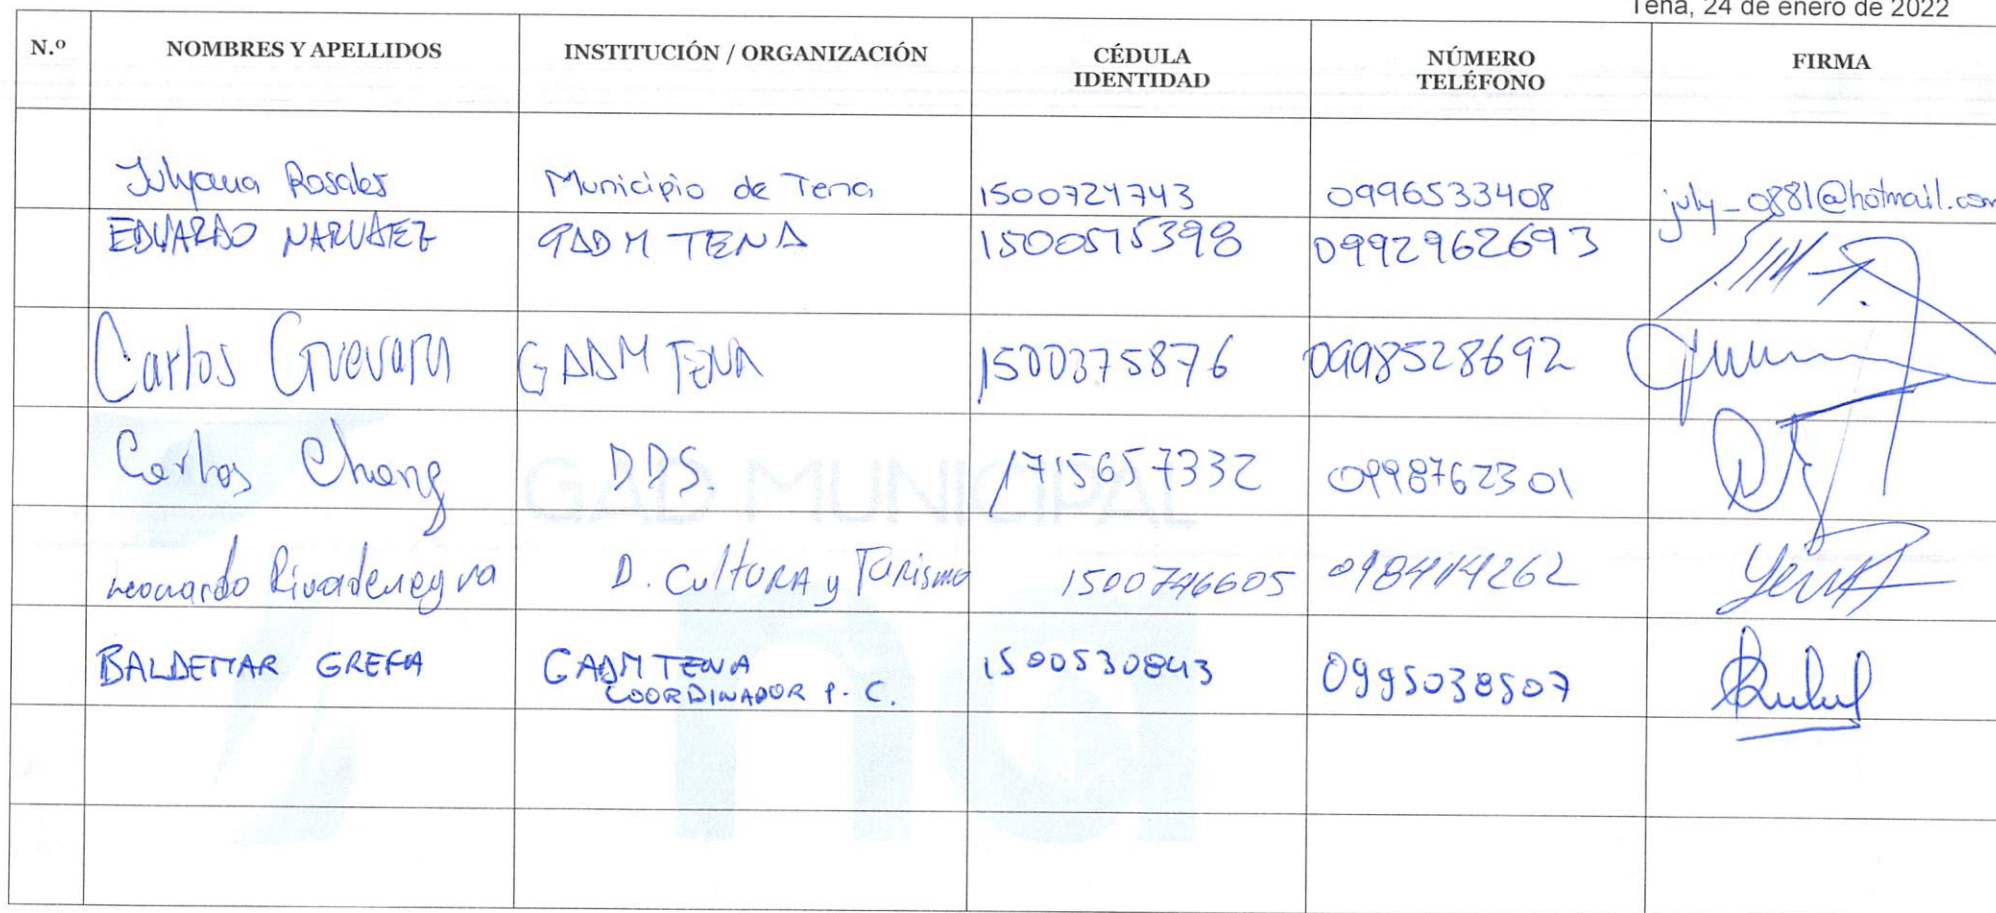 Tena, 24 de enero de 2022
N.º NOMBRES Y APELLIDOS INSTITUCIÓN / ORGANIZACIÓN CÉDULA IDENTIDAD NÚMERO TELÉFONO FIRMA
Julyana Rosales Municipio de Tena 1500724743 0996533408 july_0881@hotmail.com
EDUARDO NARVAEZ GADM TENA 1500515398 0992962693
Carlos Guevara GADM TENA 1500375876 0998528692
Carlos Chang DDS. 1715657332 0998762301
Leonardo Rivadeneyra D. Cultura y Turismo 1500746605 0984114262
BALDEMAR GREFA GADM TENA 1500530843 0995038507
COORDINADOR P. C.
GAD MUNICIPAL